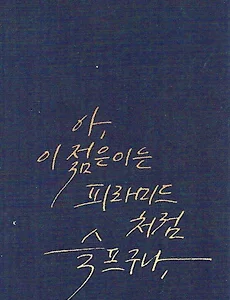 아,
이 젊은이는
피라미드
처럼
슬프구나,